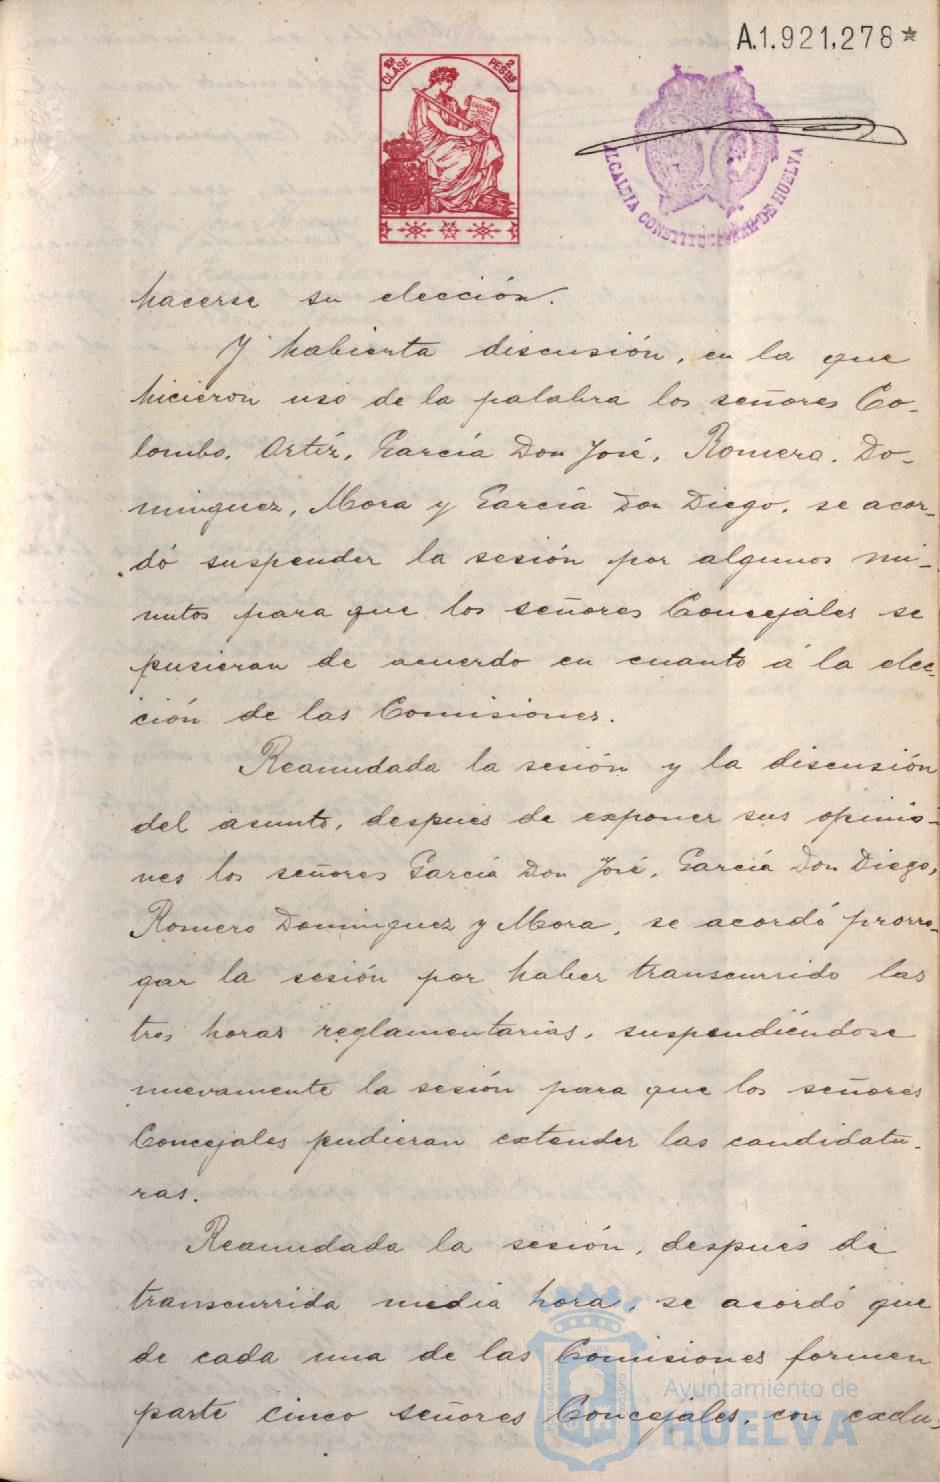 A.1.921,278*
10ª CLASE 2 PESETAS
ALCALDIA CONSTITUCIONAL DE HUELVA
hacerse su elección.
Y habierta discusión, en la que
hicieron uso de la palabra los señores Co-
lombo, Ortíz, García Don José, Romero, Do-
minguez, Mora y García Don Diego, se acor-
dó suspender la sesión por algunos mi-
nutos para que los señores Concejales se
pusieran de acuerdo en cuanto á la elec-
ción de las Comisiones.
Reanudada la sesión y la discusión
del asunto, después de exponer sus opinio-
nes los señores García Don José, García Don Diego,
Romero Dominguez y Mora, se acordó prorro-
gar la sesión por haber transcurrido las
tres horas reglamentarias, suspendiéndose
nuevamente la sesión para que los señores
Concejales pudieran extender las candidatu-
ras.
Reanudada la sesión, después de
transcurrida media hora, se acordó que
de cada una de las Comisiones formen
parte cinco señores Concejales, con exclu-
Ayuntamiento de
HUELVA